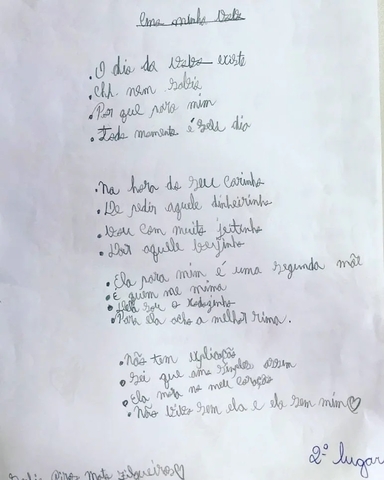 Uma minha Vovó
. O dia da Vovó existe
. Ehh nem sabia
. Por que para mim
. Todo momento é seu dia
. Na hora do seu carinho
. De pedir aquele dinheirinho
. Vou com muito jeitinho
. Dar aquele beijinho
. Ela para mim é uma segunda mãe
. É quem me mima
. Dela sou o xodozinho
. Para ela acho a melhor rima.
. Não tem explicação
. Sei que amo simples assim
. Ela mora no meu coração
. Não vivo sem ela e ela sem mim♡
2º lugar
Pires Mota Filgueiras♡